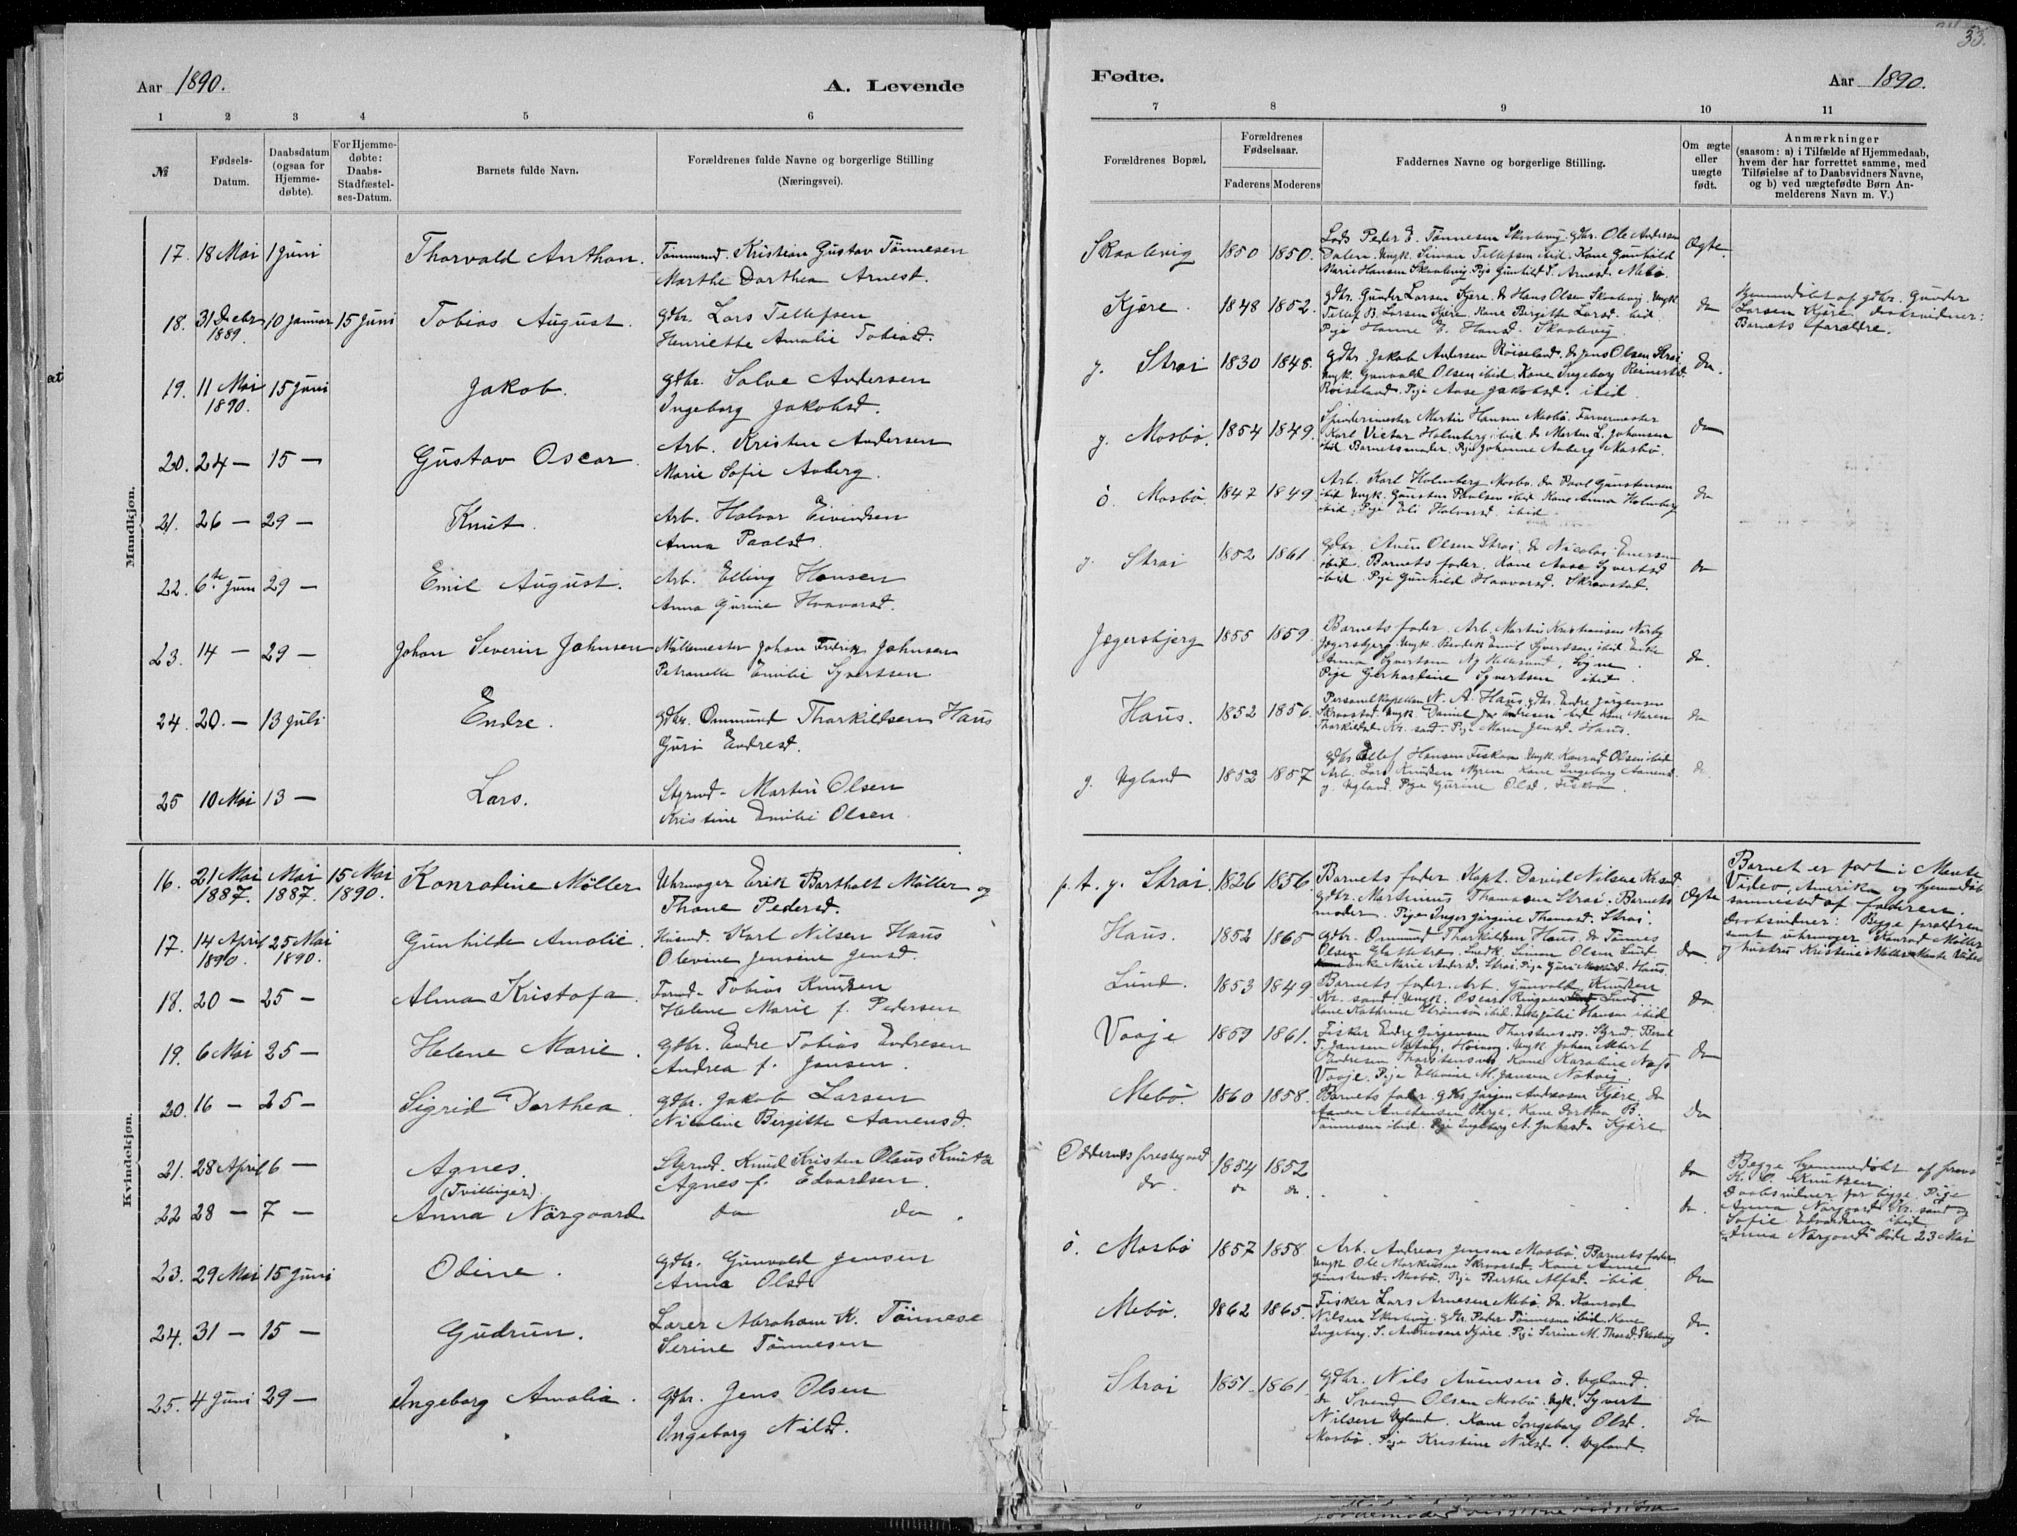 33.
Aar 1890.
A. Levende
Fødte.
Aar 1890.
1 2 3 4 5 6 7 8 9 10 11
№
Fødsels-
Datum.
Daabsdatum
(ogsaa for
Hjemme-
døbte).
For Hjemme-
døbte:
Daabs-
Stadfæstel-
ses-Datum.
Barnets fulde Navn.
Forældrenes fulde Navne og borgerlige Stilling
(Næringsvei).
Forældrenes Bopæl.
Forældrenes
Fødselsaar.
Faderens Moderens
Faddernes Navne og borgerlige Stilling.
Om ægte
eller
uægte
født.
Anmærkninger
(saasom: a) i Tilfælde af Hjemmedaab,
hvem der har forrettet samme, med
Tilføielse af to Daabsvidners Navne,
og b) ved uægtefødte Børn An-
melderens Navn m. V.)
Mandkjøn.
17. 18 Mai 1 Juni Thorvald Anthon. Tømmermd. Kristian Gustav Tönnesen
Marthe Dorthea Arnesd.
Skaalevig 1850 1850. Lods Peder E. Tönnesen Skaalevig. gbr. Ole Andersen
Dalen. Ungk. Simon Tellefsen ibid. Kone Gunhild
Marie Hansen Skaalevig. Pige Gunhild S. Arnesd. Mebö.
Ægte.
18. 31 Decbr 1889. 10 Januar 15 Juni Tobias August. Gbr. Lars Tellefsen
Henriette Amalie Tobiasd.
Kjøre. 1848 1852. Gbr. Gunder Larsen Kjøre. do Hans Olsen Skaalevig. Ungk.
Tellef B. Larsen Kjøre. Kone Birgitte Larsd. ibid.
Pige Hanne J. Hansd. Skaalevig.
do
Hjemmedöbt af gdbr. Gunder
Larsen Kjøre. Daabsvidner:
Barnets forældre.
19. 11 Mai 1890. 15 Juni Jakob. Gdbr. Salve Andersen
Ingeborg Jakobsd.
y. Strai 1830 1848. Gdbr. Jakob Andersen Röiseland. do Jens Olsen Strai
Ungk. Gunvald Olsen ibid. Kone Ingeborg Reinertsd.
Röiseland. Pige Aase Jakobsd. ibid
do.
20. 24 — 15 — Gustav Oscar. Arb. Kristen Andersen
Marie Sofie Aaberg.
y. Mosbö. 1854 1849. Spindemester Martin Hansen Mosbö. Farvermester
Karl Victor Holmberg ibid. do Morten L. Johansen
ibid. Barnets moder. Pige Johanne Aaberg Mosbö.
do
21. 26 — 29 — Knut. Arb. Halvor Eivindsen
Anna Paalsd.
ö. Mosbö 1847 1849. Arb. Karl Holmberg Mosbö. do Paul Gunstensen
ibid. Ungk. Gunsten Paulsen ibid. Kone Anna Holmberg
ibid. Pige Eli Halvorsd. ibid
do
22. 6te Juni 29 — Emil August. Arb. Elling Hansen
Anna Gurine Haavorsd.
y. Strai 1852 1861. Gdbr. Auen Olsen Strai. do Nicolai Enersen
ibid. Barnets fader. Kone Aase Syvertsd
ibid. Pige Gunhild Haavorsd. Skraastad.
do
23. 14 — 29 — Johan Severin Johnsen Möllemester Johan Fredrik Johnsen
Petronelle Emilie Syvertsen
Jægersbjerg 1855 1859. Barnets fader. Arb. Martin Kristiansen Narby
Jægersbjerg. Ungk. Bendik Emil Syvertsen ibid. Enke
Anna Syvertsen Ny Hellesund, Sogne.
Pige Gerhardine Syvertsen ibid.
do.
24. 20. — 13 Juli Endre. Gdbr. Ommund Tharkildsen Haus
Guri Endresd.
Haus. 1852 1856. Personelkapellan N. A. Haus. gdbr. Endre Jörgensen
Skraastad. Ungk. Daniel Andresen ibid. Kone Maren
Tharkildsd. Kr. sand. Pige Maren Jensd. Haus.
do
25 10 Mai 13 — Lars. Styrmd. Martin Olsen
Kristine Emilie Olsen
y. Ugland 1852 1857 Gdbr. Ellef Hansen Fiskaa. Ungk. Konrad Olsen ibid
Arb. Lars Knudsen Myren. Kone Ingeborg Aanensd.
y. Ugland. Pige Gurine Olsd. Fiskaa.
do.
Kvindekjøn.
16. 21 Mai 1887. Mai 1887. 15 Mai 1890. Konradine Möller Uhrmager Erik Barthold Möller og
Thone Pedersd.
p. t. y. Strai 1826 1856. Barnets fader. Kapt. David Nilsen Kr.sand
Gdbr. Martinius Thomasen Strai. Barnets
moder. Pige Inger Jörgine Thomasd. Strai.
Ægte
Barnet er født i Monte
Video, Amerika og hjemmedöbt
sammested af faderen.
Daabsvidner: Begge forældrene
samt uhrmager Konrad Möller
og hustru Kristine Möller Monte Video
17. 14 April 1890. 25 Mai 1890. Gunhilde Amalie. Husmd. Karl Nilsen Haus
Olevine Jensine Jensd.
Haus. 1852 1865 Gdbr. Ommund Tharkildsen Haus. do Tönnes
Olsen Slettetræ. Simon Olsen Lund
Enke Marie Andersd. Strai. Pige Guri Haus.
do.
18. 20 — 25 — Alma Kristofa. Tømmd. Tobias Knudsen
Helene Marie f. Pedersen
Lund. 1853 1849 Barnets fader. Arb. Gunvald Knudsen
Kr. sand. Ungk. Oscar Lund
Kone Kathrine ibid. Julie Hansen ibid
do
19. 6 Mai 25 — Helene Marie. Gdbr. Endre Tobias Endresen
Andrea f. Jensen.
Vaaje 1859 1861. Fisker Endre Jörgensen Tharstensnes. Styrmd. Bernt
T. Jansen Natvig, Høivaag. Ungk. Johan Albert
Andresen Tharstensnes. Kone Karoline Næss
Vaaje. Pige Ellevine M. Jansen Natvig.
do
20. 16 — 25 — Sigrid Dorthea. Gdbr. Jakob Larsen
Nicoline Bergitte Aanensd.
Mebö. 1860 1858. Barnets fader. Gdbr. Jörgen Andreassen Kjøre. do
Aanen Berge. Kone Dorthea B.
Tönnesen ibid. Pige Ingeborg A. Kjøre
do
21. 28 April 6 — Agnes. Styrmd. Knud Kristen Olaus Knutzen
Agnes f. Edvardsen.
Oddernes prestegaard 1854 1852
do
Begge hjemmedöbt af
K. O. Knutzen
Daabsvidner for begge. Pige
Anna Nörgaard Kr. sand og
Sofie Edvardsen ibid.
Anna Nörgaard döde 23 Mai
(Tvillinger)
22 28 — 7 — Anna Nörgaard do do.
do. do do. do.
23. 29 Mai 15 Juni Odine. Gdbr. Gunvald Jensen
Anna Olsd
ö. Mosbö 1857 1858 Arb. Andreas Jensen Mosbö. Barnets fader.
Ungk. Ole Markusen Skraastad. Kone Anne
Gunstensd. Mosbö. Pige Berthe Alfsd. ibid
do
24. 31 — 15 — Gudrun. Lærer Abraham K. Tönnesen
Serine Tönnesen
Mebö. 1862 1865. Fisker Lars Arnesen Mebö. do. Konrad
Nilsen Skaalevig. Gdbr. Peder Tönnesen ibid. Kone
Ingeborg S. Andreasen Kjøre. Pige Serine M. Thorsd. Skaalevig
do.
25. 4 Juni 29 — Ingeborg Amalia. Gdbr. Jens Olsen
Ingeborg Nilsd.
Strai 1851 1861. Gdbr. Nils Auensen ö. Ugland.
do Svend Olsen Mosbö. Ungk. Syvert
Nilsen Ugland. Kone Ingeborg Olsd.
Mosbö. Pige Kristine Nilsd. Ugland.
do